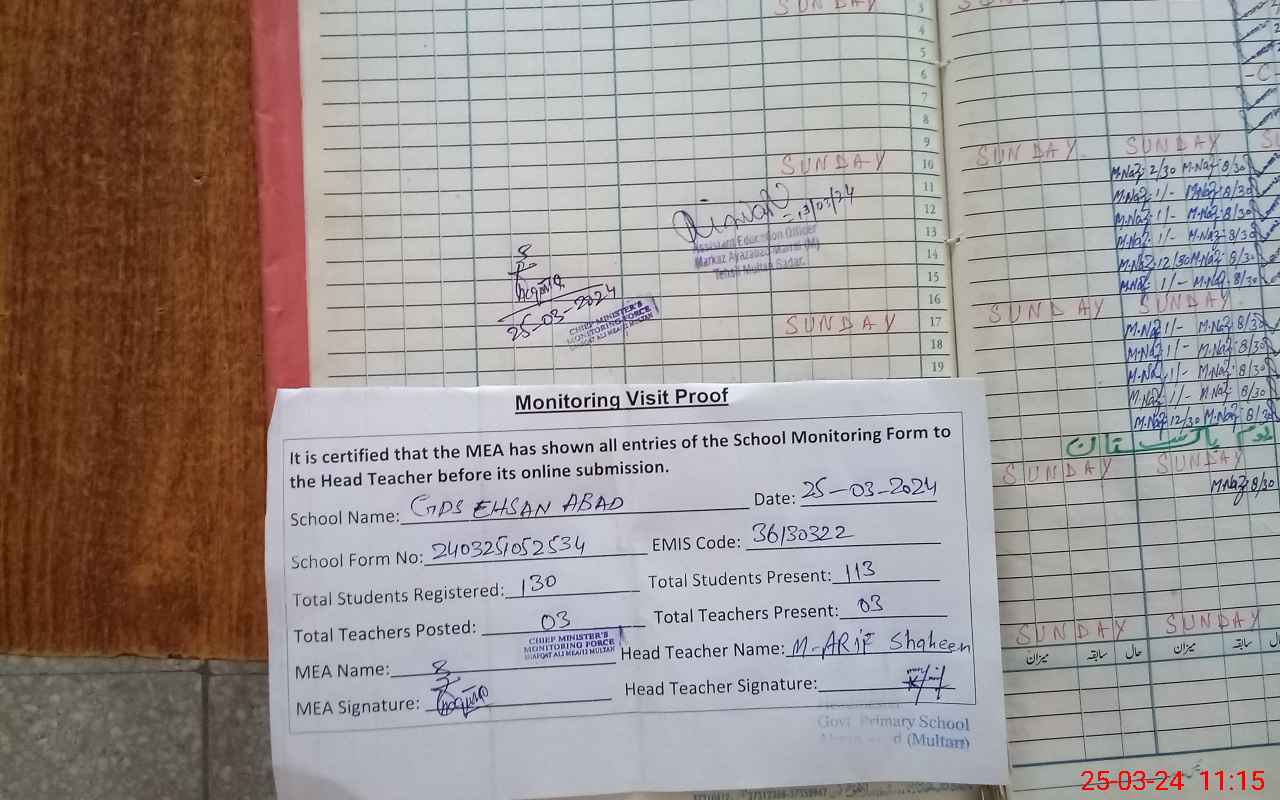 SUNDAY
3
4
5
6
7
8
9
SUNDAY
10
11
12
13
14
15
16
SUNDAY
17
18
19
13/03/24
Assistant Education Officer
Tehsil Multan Sadar.
25-03-2024
CHIEF MINISTER'S
MONITORING FORCE
SUNDAY SUNDAY
M.Naz: 2/30 M.Naz: 8/30
M.Naz: 1/- M.Naz: 8/30
M.Naz: 1/- M.Naz: 8/30
M.Naz: 1/- M.Naz: 8/30
M.Naz: 12/30 M.Naz: 8/30
M.Naz: 1/- M.Naz: 8/30
SUNDAY SUNDAY
M.Naz: 1/- M.Naz: 8/30
M.Naz: 1/- M.Naz: 8/30
M.Naz: 1/- M.Naz: 8/30
M.Naz: 1/- M.Naz: 8/30
M.Naz: 12/30 M.Naz: 8/30
یوم پاکستان
SUNDAY SUNDAY
M.Naz: 8/30
SUNDAY SUNDAY
میزان سابقہ حال میزان سابقہ
Monitoring Visit Proof
It is certified that the MEA has shown all entries of the School Monitoring Form to
the Head Teacher before its online submission.
School Name: GPS EHSAN ABAD Date: 25-03-2024
School Form No: 2403251052534 EMIS Code: 36130322
Total Students Registered: 130 Total Students Present: 113
Total Teachers Posted: 03 Total Teachers Present: 03
CHIEF MINISTER'S
MONITORING FORCE
MEA Name: Head Teacher Name: M-ARIF Shaheen
MEA Signature: Head Teacher Signature:
Govt Primary School
(Multan)
25-03-24 11:15